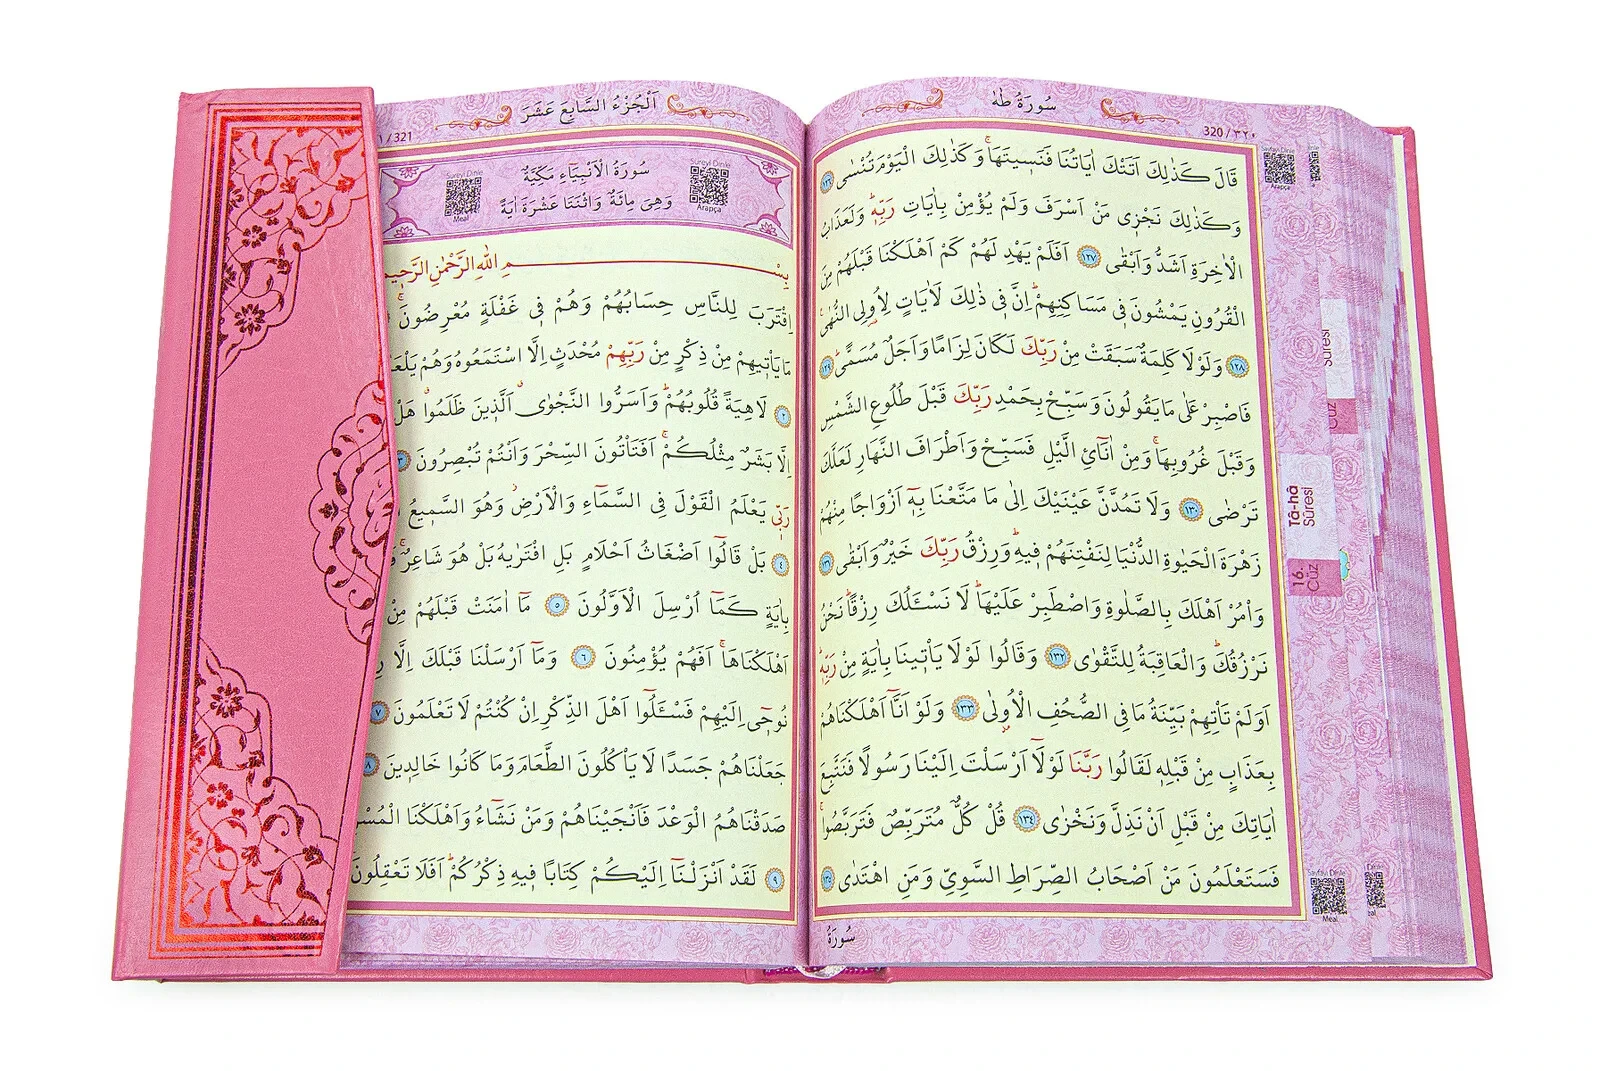 سُورَةُ طٰهٰ
320 / ٣٢٠
قَالَ كَذٰلِكَ اَتَتْكَ اٰيَاتُنَا فَنَسٖيتَهَاۚ وَكَذٰلِكَ الْيَوْمَ تُنْسٰى ﴿١٢٦﴾
وَكَذٰلِكَ نَجْزٖى مَنْ اَسْرَفَ وَلَمْ يُؤْمِنْ بِاٰيَاتِ رَبِّهٖؕ وَلَعَذَابُ
الْاٰخِرَةِ اَشَدُّ وَاَبْقٰى ﴿١٢٧﴾ اَفَلَمْ يَهْدِ لَهُمْ كَمْ اَهْلَكْنَا قَبْلَهُمْ مِنَ
الْقُرُونِ يَمْشُونَ فٖى مَسَاكِنِهِمْؕ اِنَّ فٖى ذٰلِكَ لَاٰيَاتٍ لِاُولِى النُّهٰى
﴿١٢٨﴾ وَلَوْلَا كَلِمَةٌ سَبَقَتْ مِنْ رَبِّكَ لَكَانَ لِزَامًا وَاَجَلٌ مُسَمًّىؕ ﴿١٢٩﴾
فَاصْبِرْ عَلٰى مَا يَقُولُونَ وَسَبِّحْ بِحَمْدِ رَبِّكَ قَبْلَ طُلُوعِ الشَّمْسِ
وَقَبْلَ غُرُوبِهَاۚ وَمِنْ اٰنَائِ الَّيْلِ فَسَبِّحْ وَاَطْرَافَ النَّهَارِ لَعَلَّكَ
تَرْضٰى ﴿١٣٠﴾ وَلَا تَمُدَّنَّ عَيْنَيْكَ اِلٰى مَا مَتَّعْنَا بِهٖٓ اَزْوَاجًا مِنْهُمْ
زَهْرَةَ الْحَيٰوةِ الدُّنْيَا لِنَفْتِنَهُمْ فٖيهِؕ وَرِزْقُ رَبِّكَ خَيْرٌ وَاَبْقٰى ﴿١٣١﴾
وَاْمُرْ اَهْلَكَ بِالصَّلٰوةِ وَاصْطَبِرْ عَلَيْهَاؕ لَا نَسْـَٔلُكَ رِزْقًاؕ نَحْنُ
نَرْزُقُكَؕ وَالْعَاقِبَةُ لِلتَّقْوٰى ﴿١٣٢﴾ وَقَالُوا لَوْلَا يَاْتٖينَا بِاٰيَةٍ مِنْ رَبِّهٖؕ
اَوَلَمْ تَاْتِهِمْ بَيِّنَةُ مَا فِى الصُّحُفِ الْاُولٰى ﴿١٣٣﴾ وَلَوْ اَنَّٓا اَهْلَكْنَاهُمْ
بِعَذَابٍ مِنْ قَبْلِهٖ لَقَالُوا رَبَّنَا لَوْلَٓا اَرْسَلْتَ اِلَيْنَا رَسُولًا فَنَتَّبِعَ
اٰيَاتِكَ مِنْ قَبْلِ اَنْ نَذِلَّ وَنَخْزٰى ﴿١٣٤﴾ قُلْ كُلٌّ مُتَرَبِّصٌ فَتَرَبَّصُواۚ
فَسَتَعْلَمُونَ مَنْ اَصْحَابُ الصِّرَاطِ السَّوِىِّ وَمَنِ اهْتَدٰى ﴿١٣٥﴾
سُورَةُ
Sayfayı Dinle
Arapça
Sûresi
Cüz
Tâ-hâ
Sûresi
16.
Cüz
Sayfayı Dinle
Meal
اَلْجُزْءُ السَّابِعَ عَشَرَ
/ 321
سُورَةُ الْاَنْبِيَٓاءِ مَكِّيَّةٌ
وَهِىَ مِائَةٌ وَاثْنَتَا عَشْرَةَ اٰيَةً
Sureyi Dinle
Arapça
Sureyi Dinle
Meal
بِسْمِ اللّٰهِ الرَّحْمٰنِ الرَّحٖيمِ
اِقْتَرَبَ لِلنَّاسِ حِسَابُهُمْ وَهُمْ فٖى غَفْلَةٍ مُعْرِضُونَۚ
مَا يَاْتٖيهِمْ مِنْ ذِكْرٍ مِنْ رَبِّهِمْ مُحْدَثٍ اِلَّا اسْتَمَعُوهُ وَهُمْ
﴿٢﴾ لَاهِيَةً قُلُوبُهُمْؕ وَاَسَرُّوا النَّجْوٰى اَلَّذٖينَ ظَلَمُوا هَلْ
اِلَّا بَشَرٌ مِثْلُكُمْۚ اَفَتَاْتُونَ السِّحْرَ وَاَنْتُمْ تُبْصِرُونَ ﴿٣﴾
رَبّٖى يَعْلَمُ الْقَوْلَ فِى السَّمَٓاءِ وَالْاَرْضِ وَهُوَ السَّمٖيعُ
﴿٤﴾ بَلْ قَالُٓوا اَضْغَاثُ اَحْلَامٍ بَلِ افْتَرٰيهُ بَلْ هُوَ شَاعِرٌۚ
بِاٰيَةٍ كَمَٓا اُرْسِلَ الْاَوَّلُونَ ﴿٥﴾ مَٓا اٰمَنَتْ قَبْلَهُمْ مِنْ
اَهْلَكْنَاهَاۚ اَفَهُمْ يُؤْمِنُونَ ﴿٦﴾ وَمَٓا اَرْسَلْنَا قَبْلَكَ اِلَّا
نُوحٖٓى اِلَيْهِمْ فَسْـَٔلُٓوا اَهْلَ الذِّكْرِ اِنْ كُنْتُمْ لَا تَعْلَمُونَ ﴿٧﴾
جَعَلْنَاهُمْ جَسَدًا لَا يَاْكُلُونَ الطَّعَامَ وَمَا كَانُوا خَالِدٖينَ ﴿٨﴾
صَدَقْنَاهُمُ الْوَعْدَ فَاَنْجَيْنَاهُمْ وَمَنْ نَشَٓاءُ وَاَهْلَكْنَا
﴿٩﴾ لَقَدْ اَنْزَلْنَٓا اِلَيْكُمْ كِتَابًا فٖيهِ ذِكْرُكُمْؕ اَفَلَا تَعْقِلُونَ